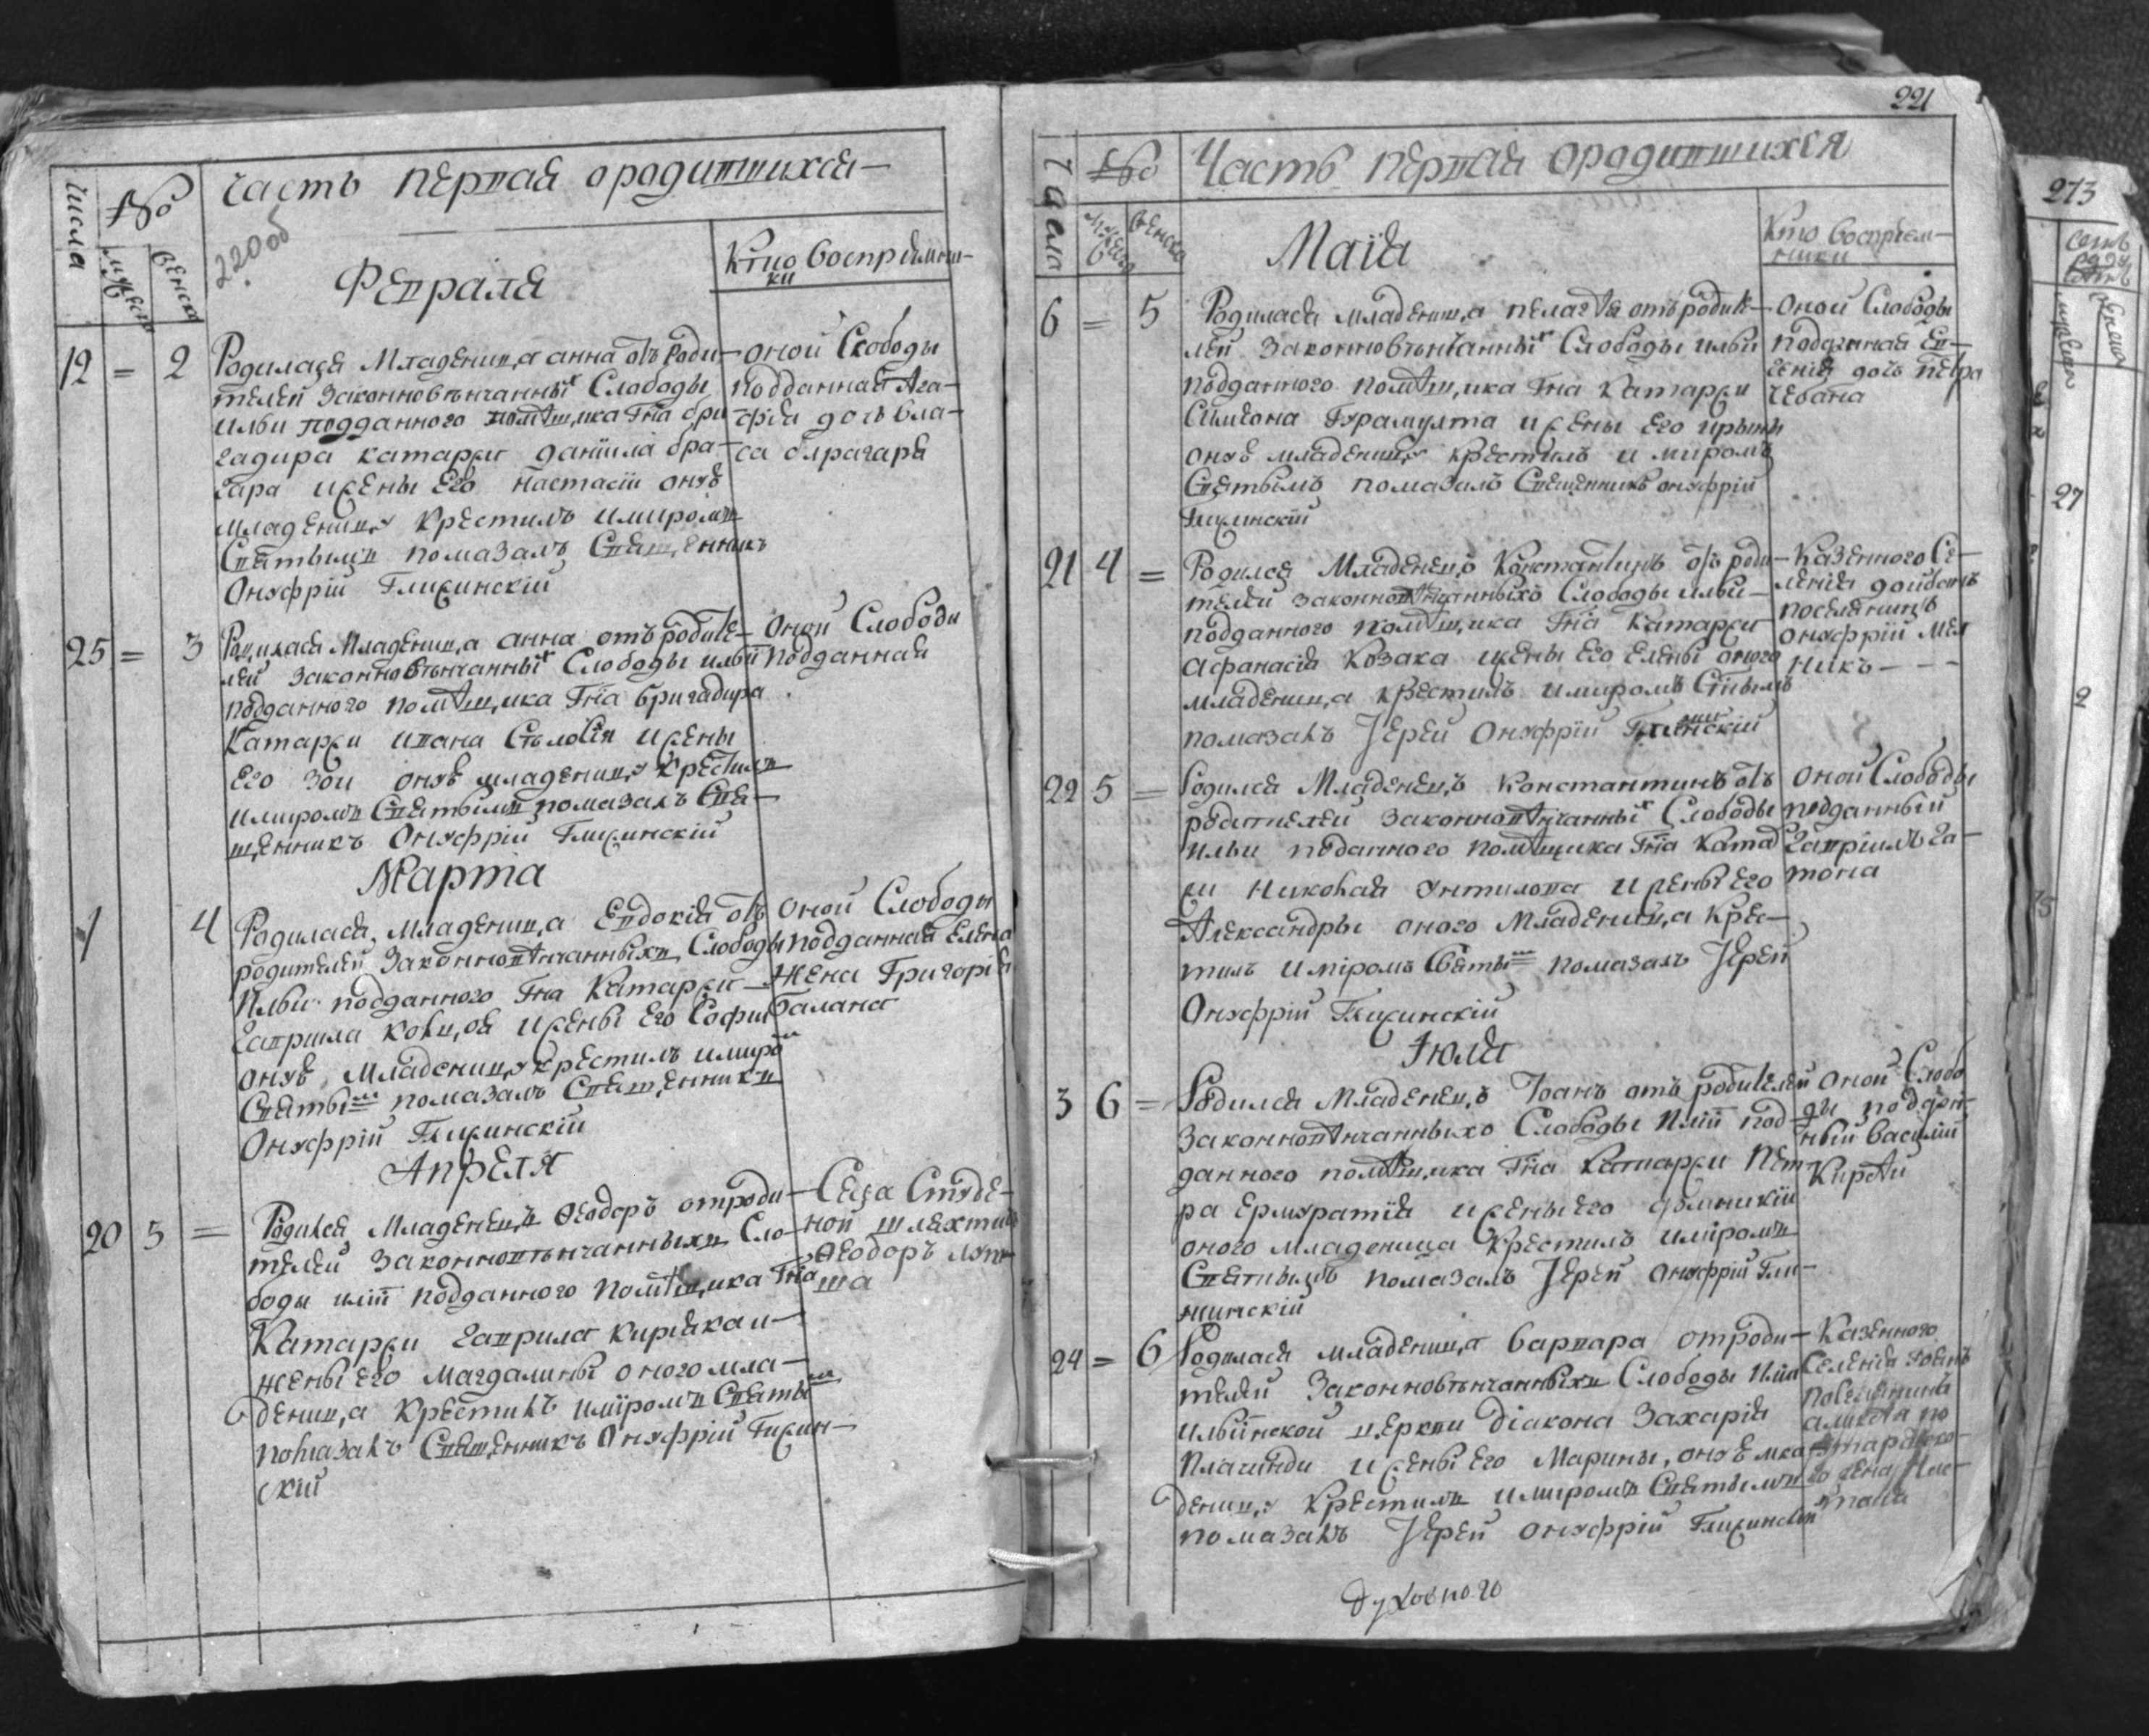 Часть первая о родившихся
числа
№
мужеск
женск
220об
Февраля
Кто восприемни-
ки
12 = 2
Родилася Младеница анна отъ роди-
телей законновѣнчанныхъ Слободы
ильи подданного помѣщика Гна бри
гадира катаржи даніила бра-
гара и жены его настасіи онуѣ
младеницу крестилъ и миромъ
Святымъ помазалъ Священникъ
Онуфрій Глижинскій
оной Слободы
подданная Ага-
фія дочь вла-
са
25 = 3
Родилася Младеница анна отъ родите-
лей законновѣнчанныхъ Слободы ильи
подданного помѣщика Гна бригадира
Катаржи ивана и жены
его зои онуѣ младеницу крестилъ
и миромъ Святымъ помазалъ Свя-
щенникъ Онуфрій Глижинскій
Оной Слободи
подданная
Марта
1 4
Родилася Младеница Евдокія отъ
родителей Законновѣнчанныхъ Слободы
Ильи подданного Гна Катаржи
гаврила и жены его Софіи
онуѣ Младеницу крестилъ и миро
Святымъ помазалъ Священникъ
Онуфрій Глижинскій
Оной Слободы
подданная Елена
жена Григорія
балана
Апреля
20 5 =
Родился Младенецъ Ѳеодоръ от роди-
телей законновѣнчанныхъ Сло-
боды иліи подданного помѣщика Гна
Катаржи гаврила киріяка и
жены его магдалины оного мла-
деница крестилъ и міромъ Святымъ
помазалъ Священникъ Онуфрій Глижин-
скій
Села Студе-
ной шляхтичъ
Ѳеодоръ
221
числа
№
мужеск
женск
Часть первая о родившихся
Маія
Кто восприем-
ники
6 = 5
Родилася младеница пелагѣя отъ родите-
лей законновѣнчанныхъ Слободы ильи
подданного помѣщика Гна Катаржи
Симеона и жены его ирыны
онуѣ младеницу крестилъ и миромъ
Святымъ помазалъ Священникъ онуфрій
Глижинскій
оной Слободы
подданная Ев-
генія дочь петра
чебана
21 4 =
Родился Младенецъ Константинъ отъ роди-
телей законновѣнчанныхъ Слободы ильи
подданного помѣщика Гна Катаржи
афанасія Козака жены его елены оного
младеница крестилъ и миромъ Стымъ
помазалъ Іерей Онуфрій Глижинскій
Казенного Се-
ленія
поселянинъ
онуфрій мел
никъ - - -
22 5 =
Родился Младенецъ Константинъ отъ
родителей законновѣнчанныхъ Слободы
ильи поданного помѣщика Гна Катар
жи николая Антипова и жены его
Александры оного Младеница крес-
тилъ и міромъ Святымъ помазалъ Іерей
Онуфрій Глижинскій
оной Слободы
подданный
гавріилъ га-
Іюля
3 6 =
Родился Младенецъ Іоанъ отъ родителей
законновѣнчанныхъ Слободы Иліи под-
данного помѣщика Гна Катаржи Пет-
ра Ермуратія и жены его домникіи
оного младеница крестилъ и міромъ
Святымъ помазалъ Іерей Онуфрій Гли-
жинскій
оной Слобо
ды поддан-
ный василій
Кирѣй
24 = 6
Родилася младеница варвара от роди-
телей законновѣнчанныхъ Слободы Иліи
ильинской церкви діакона Захарія
Плачинди и жены его Марины, онуѣ мла
деницу крестилъ и миромъ Святымъ
помазалъ Іерей онуфрій Глижинскій
Казенного
Селенія
духовного
273
27
2
15